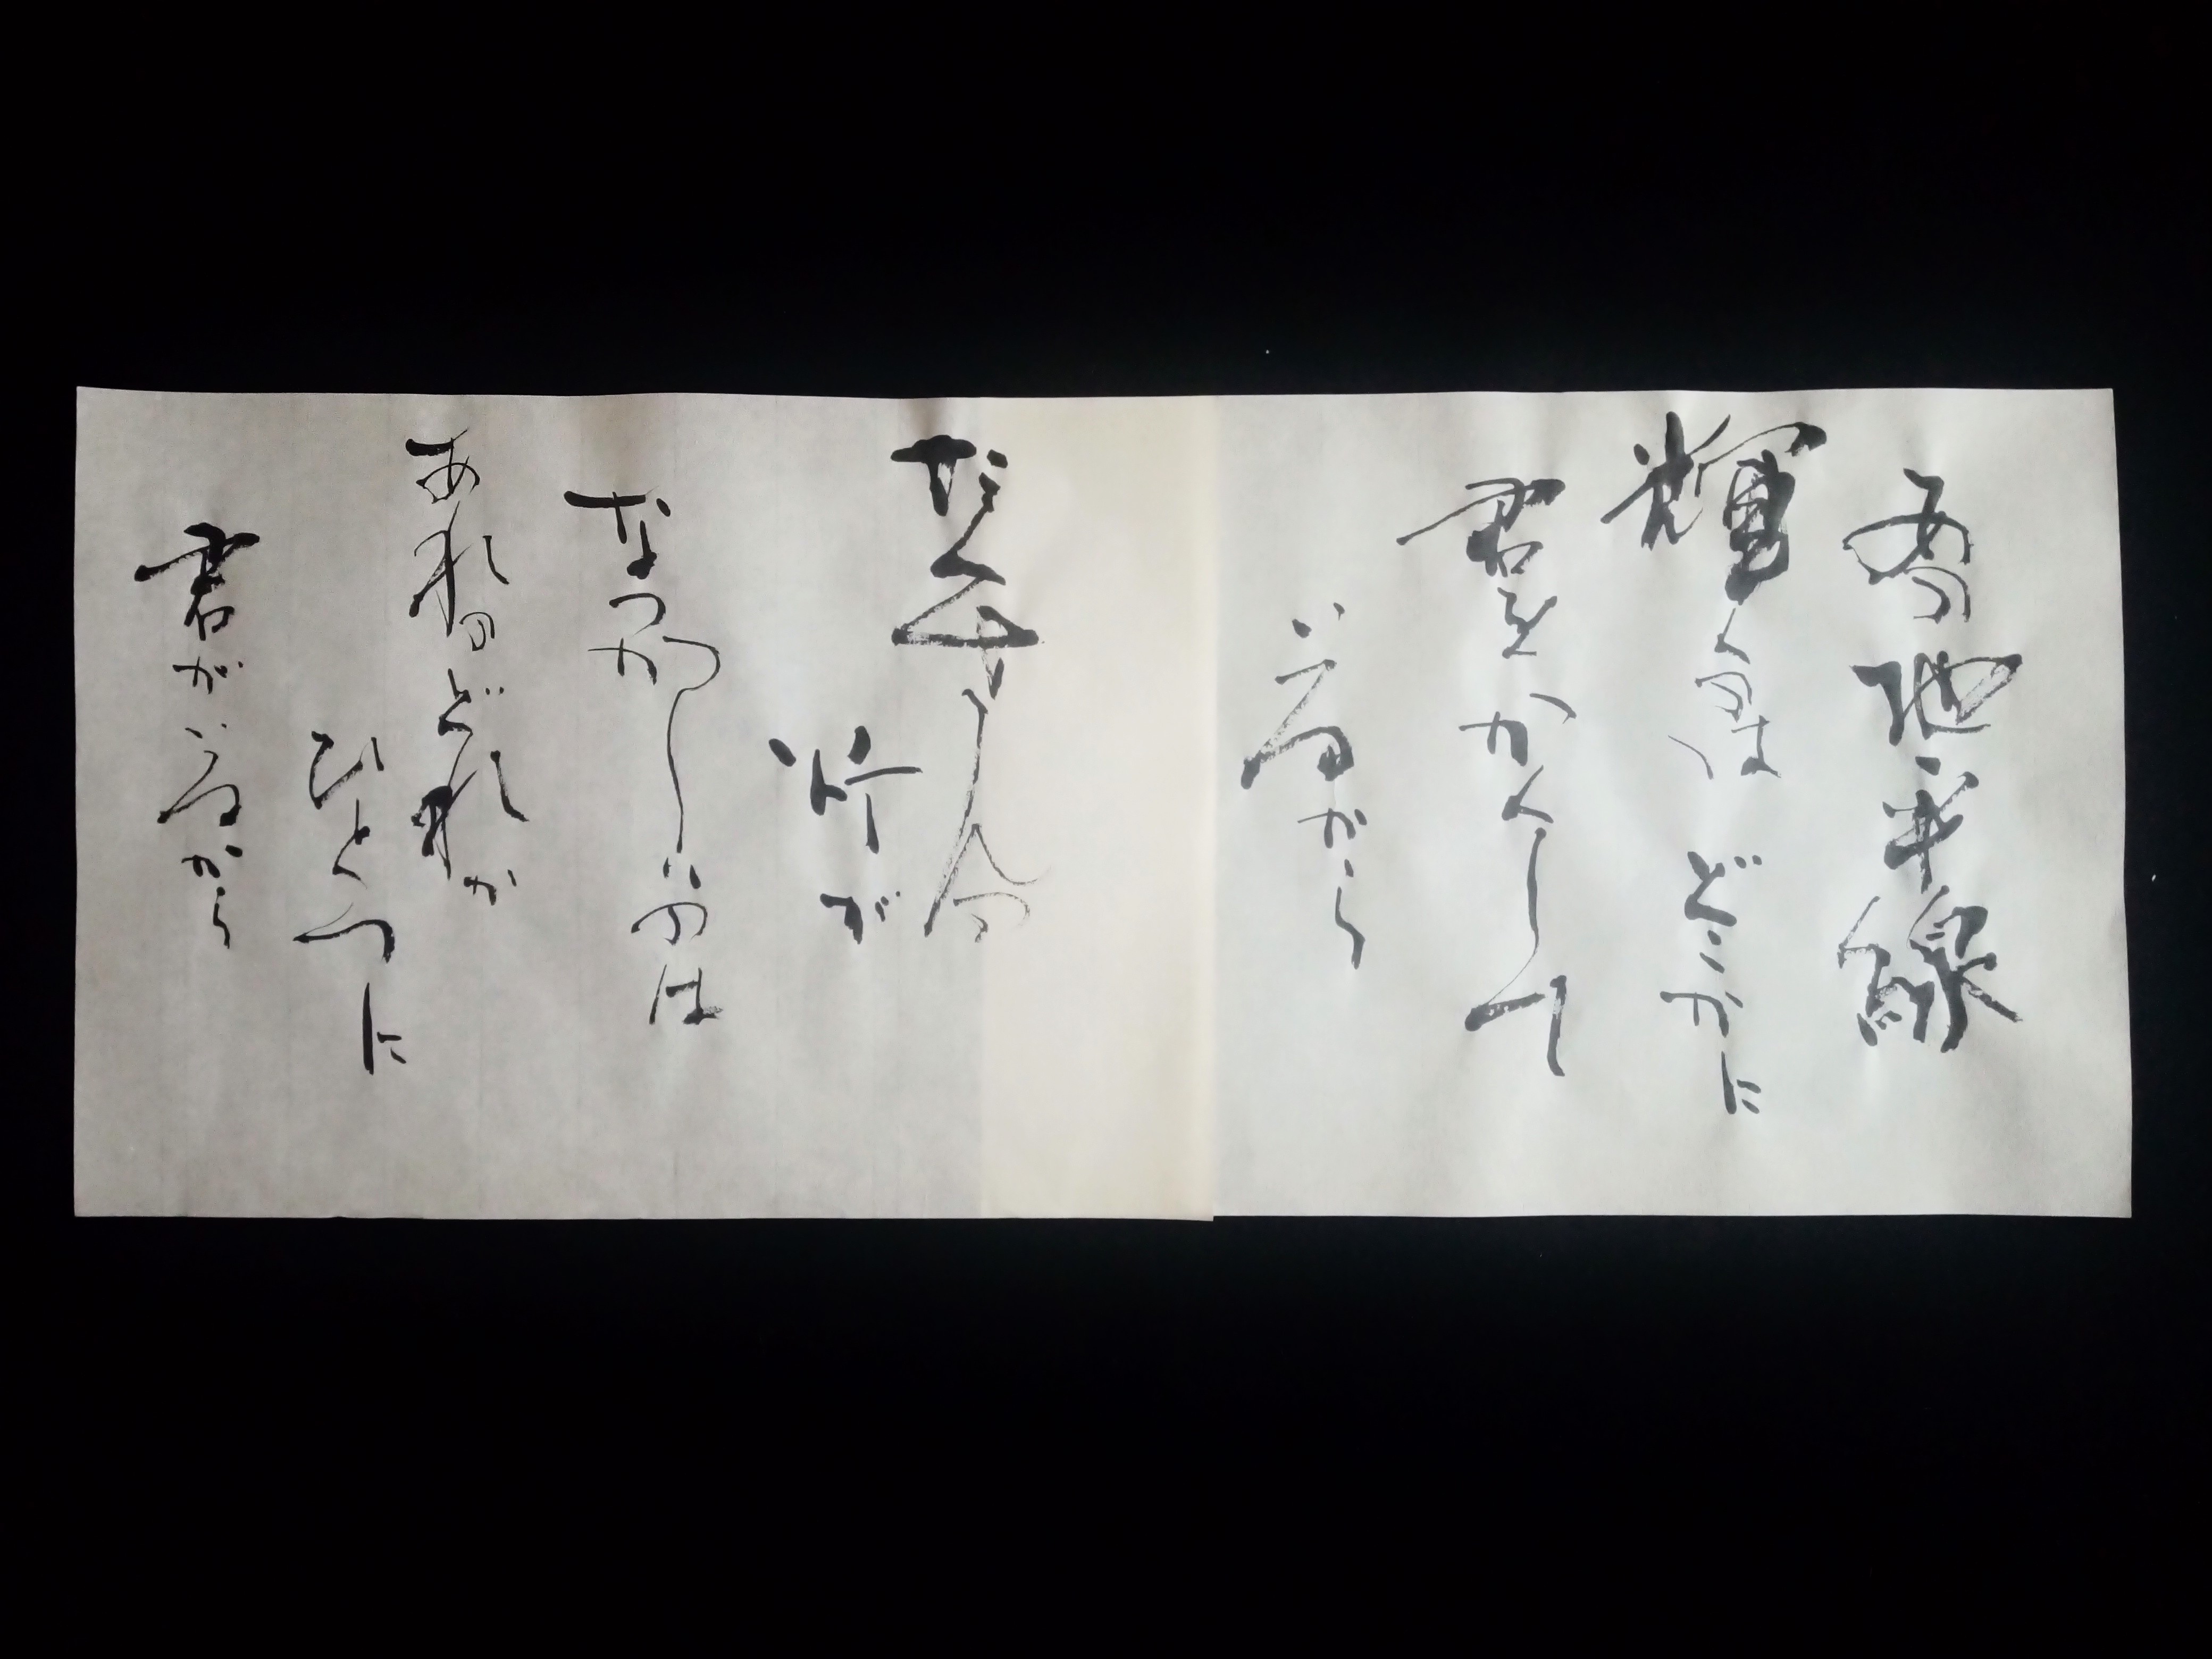 あの地平線
輝くのはどこかに
君をかくして
いるから
たくさんの
灯が
なつかしいのは
あれのどれか
ひとつに
君がいるから